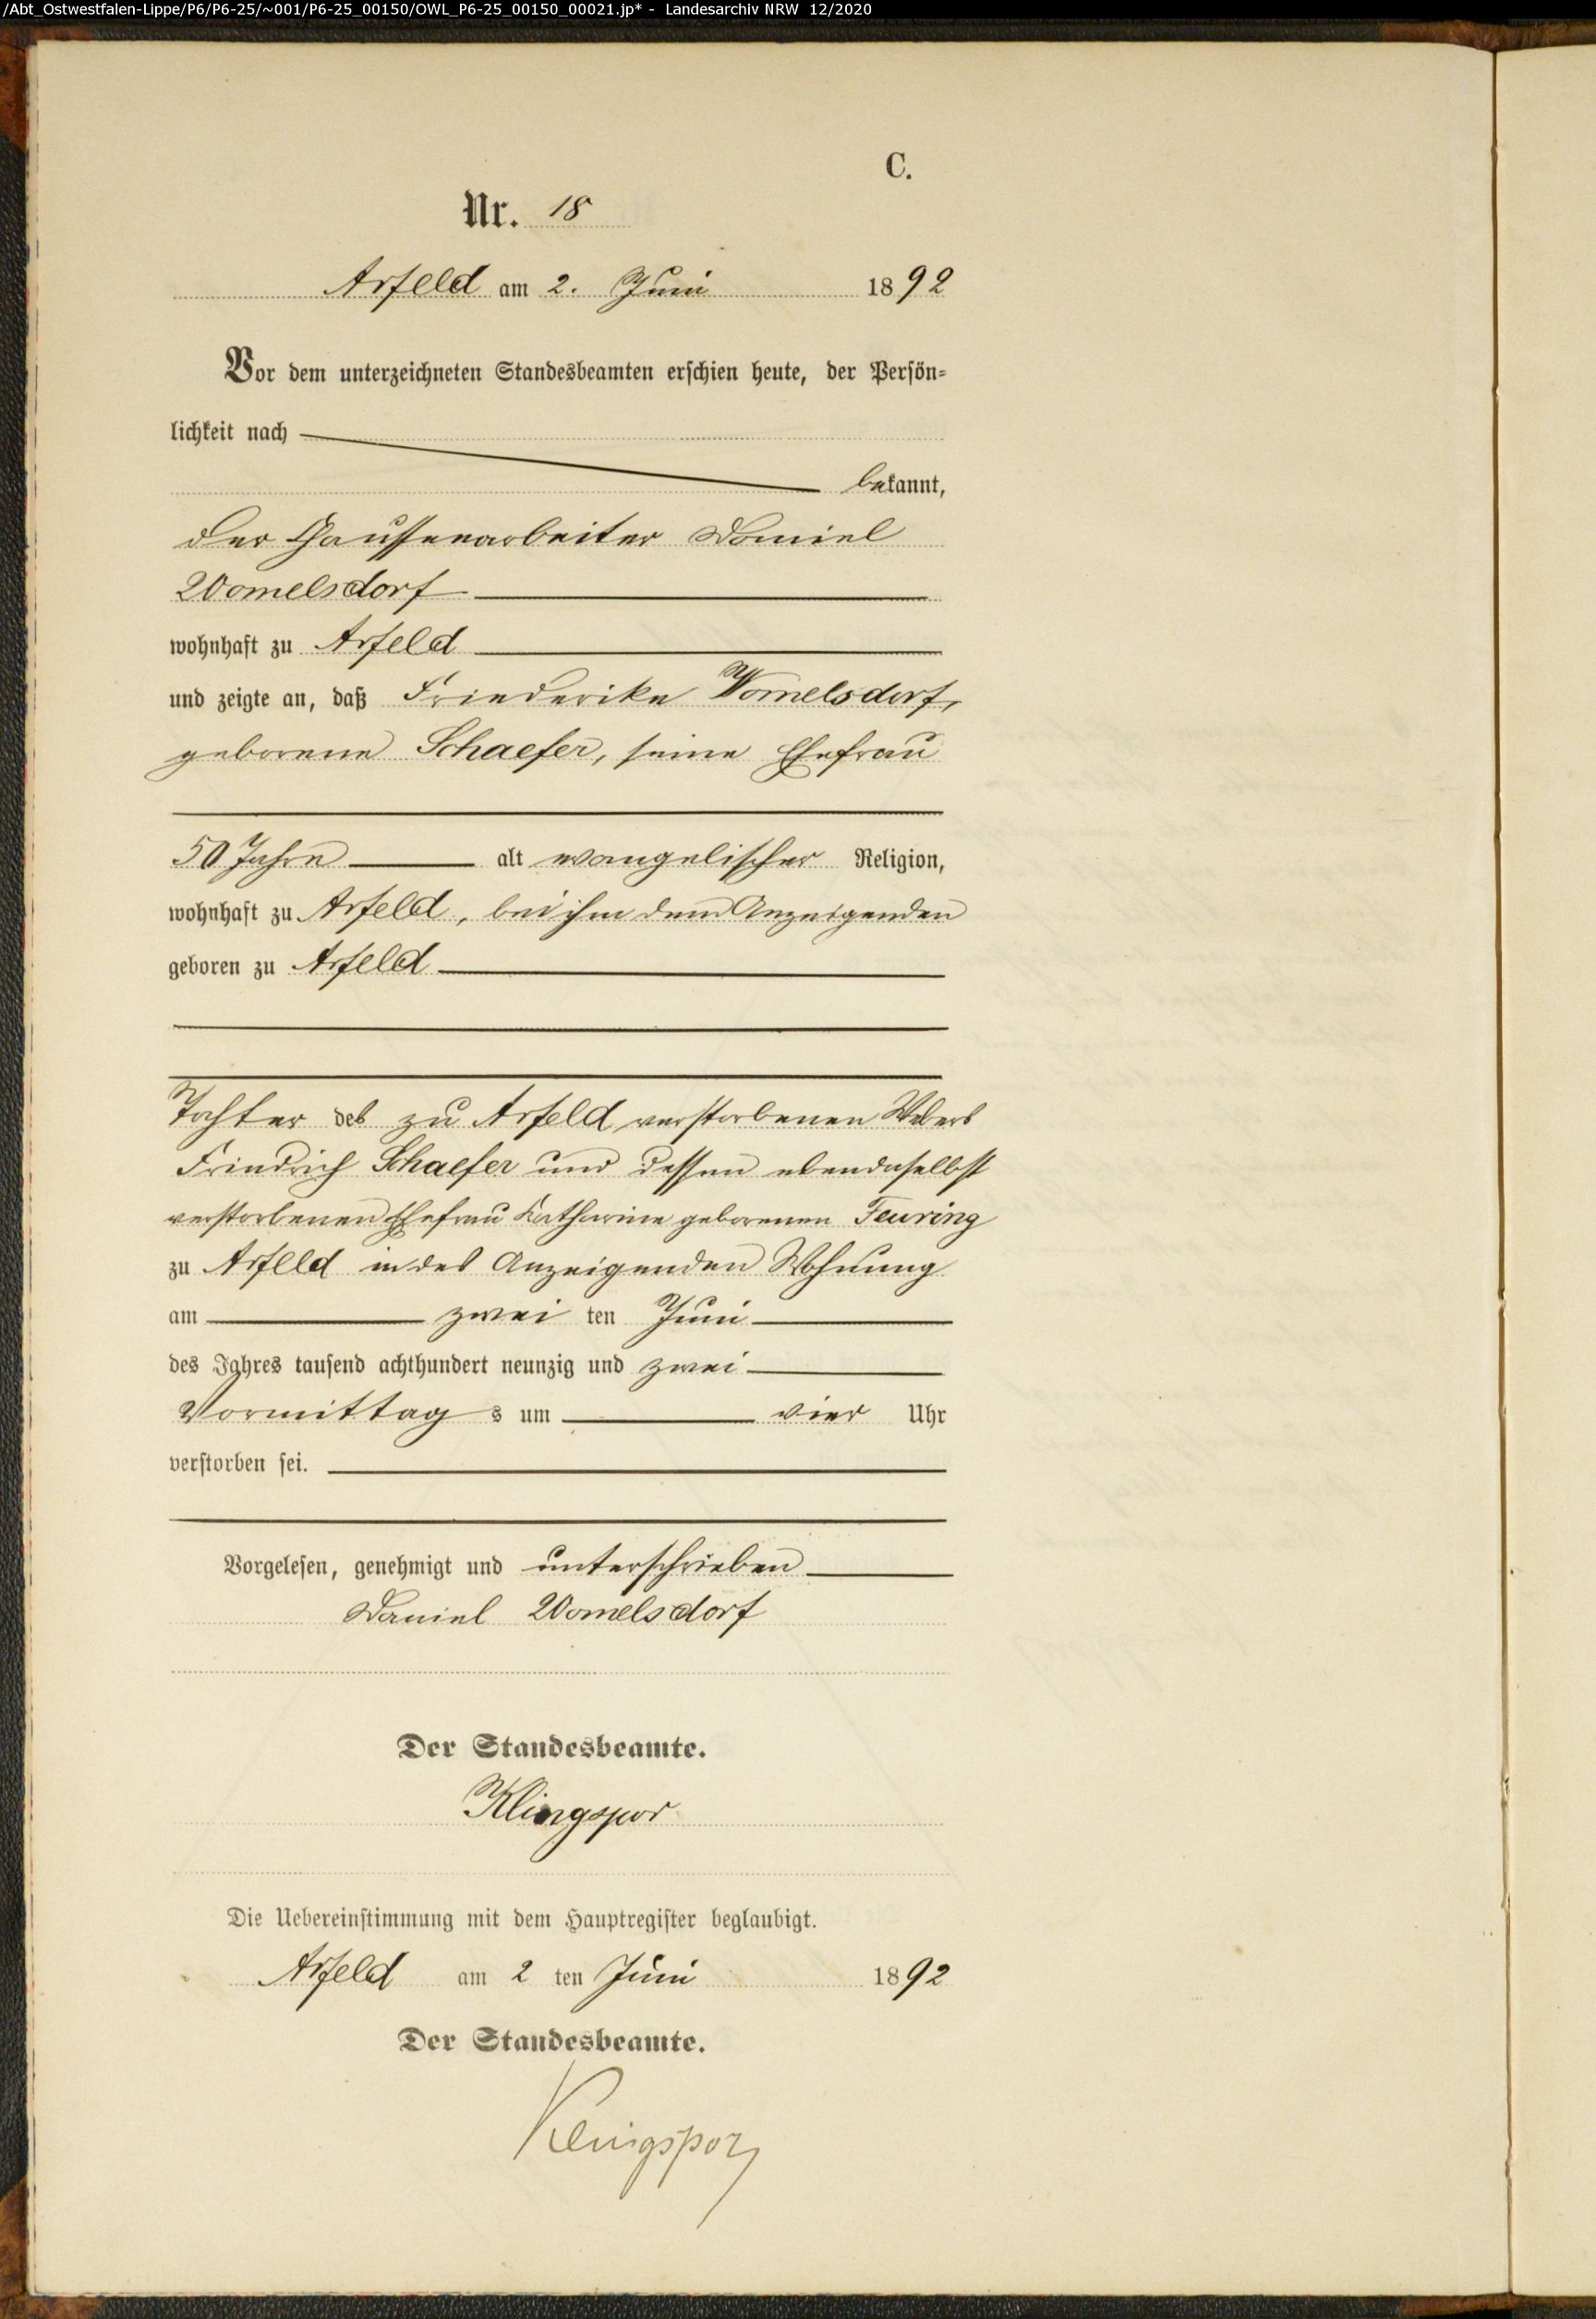 /Abt_Ostwestfalen-Lippe/P6/P6-25/~001/P6-25_00150/OWL_P6-25_00150_00021.jp* - Landesarchiv NRW 12/2020
C.
Nr. 18
Arfeld am 2. Juni 1892
Vor dem unterzeichneten Standesbeamten erschien heute, der Persön-
lichkeit nach
bekannt,
der Chausseearbeiter Daniel
Womelsdorf
wohnhaft zu Arfeld
und zeigte an, daß Friederike Womelsdorf,
geborene Schaefer, seine Ehefrau
50 Jahre alt evangelischer Religion,
wohnhaft zu Arfeld, bei ihm dem Anzeigenden
geboren zu Arfeld
Tochter des zu Arfeld verstorbenen Webers
Friedrich Schaefer und dessen ebendaselbst
verstorbenen Ehefrau Katharine geborenen Feuring
zu Arfeld in des Anzeigenden Wohnung
am zwei ten Juni
des Jahres tausend achthundert neunzig und zwei
Vormittag s um vier Uhr
verstorben sei.
Vorgelesen, genehmigt und unterschrieben
Daniel Womelsdorf
Der Standesbeamte.
Klingspor
Die Uebereinstimmung mit dem Hauptregister beglaubigt.
Arfeld am 2 ten Juni 1892
Der Standesbeamte.
Klingspor